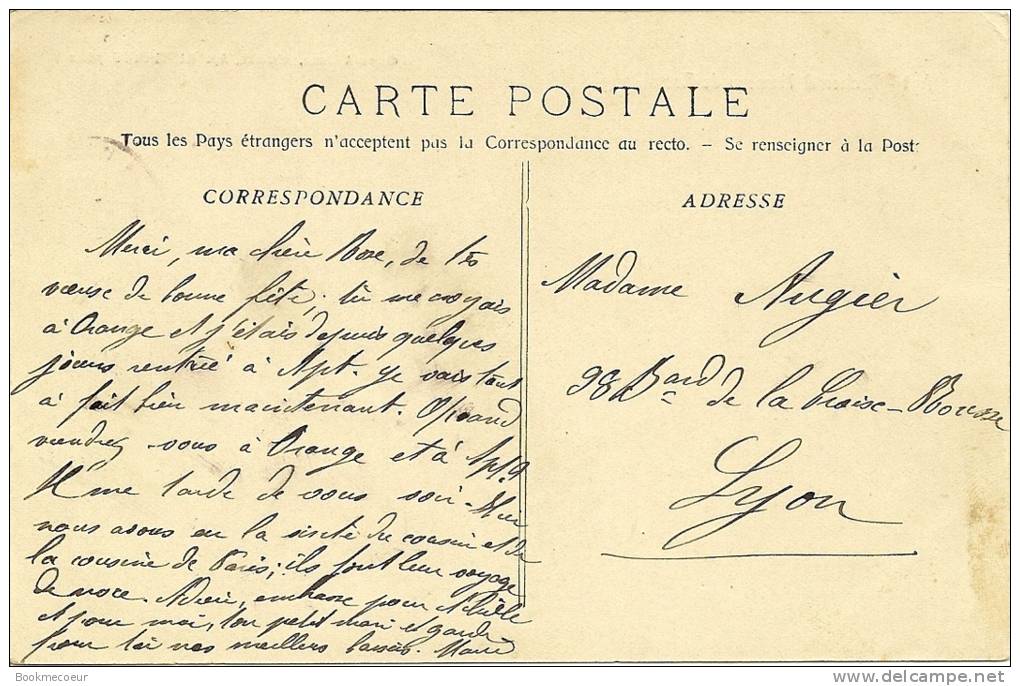 CARTE POSTALE
Tous les Pays étrangers n'acceptent pas la Correspondance au recto. – Se renseigner à la Post
CORRESPONDANCE
Merci, ma chère Rose, de tes
vœux de bonne fête. tu me croyais
à Orange et j'étais depuis quelques
jours rentrée à Apt. Je vais tout
à fait bien maintenant. Quand
viendrez vous à Orange et à Apt?
Il me tarde de vous voir. Hier
nous avons eu la visite du cousin et de
la cousine de Paris; ils font leur voyage
de noce. Adieu, embrasse pour Achille
et pour moi, ton petit mari et garde
pour toi nos meilleurs baisers. Marie
ADRESSE
Madame Augier
98 Bard de la Croix-Rousse
Lyon
Bookmecoeur
www.delcampe.net